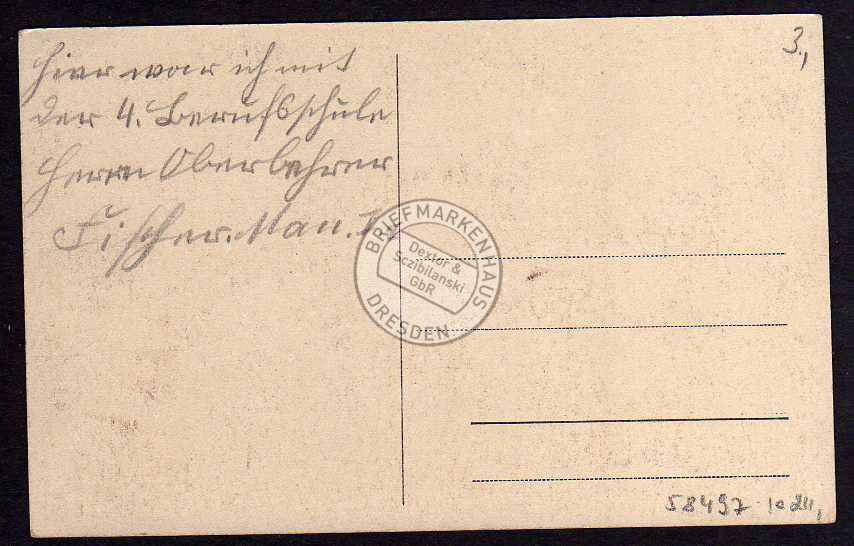 3.,
Hier war ich mit
der 4. Berufsschule
Herrn Oberlehrer
Fischer.
BRIEFMARKENHAUS
Dexlor &
Sczibilanski
GbR
DRESDEN
58497